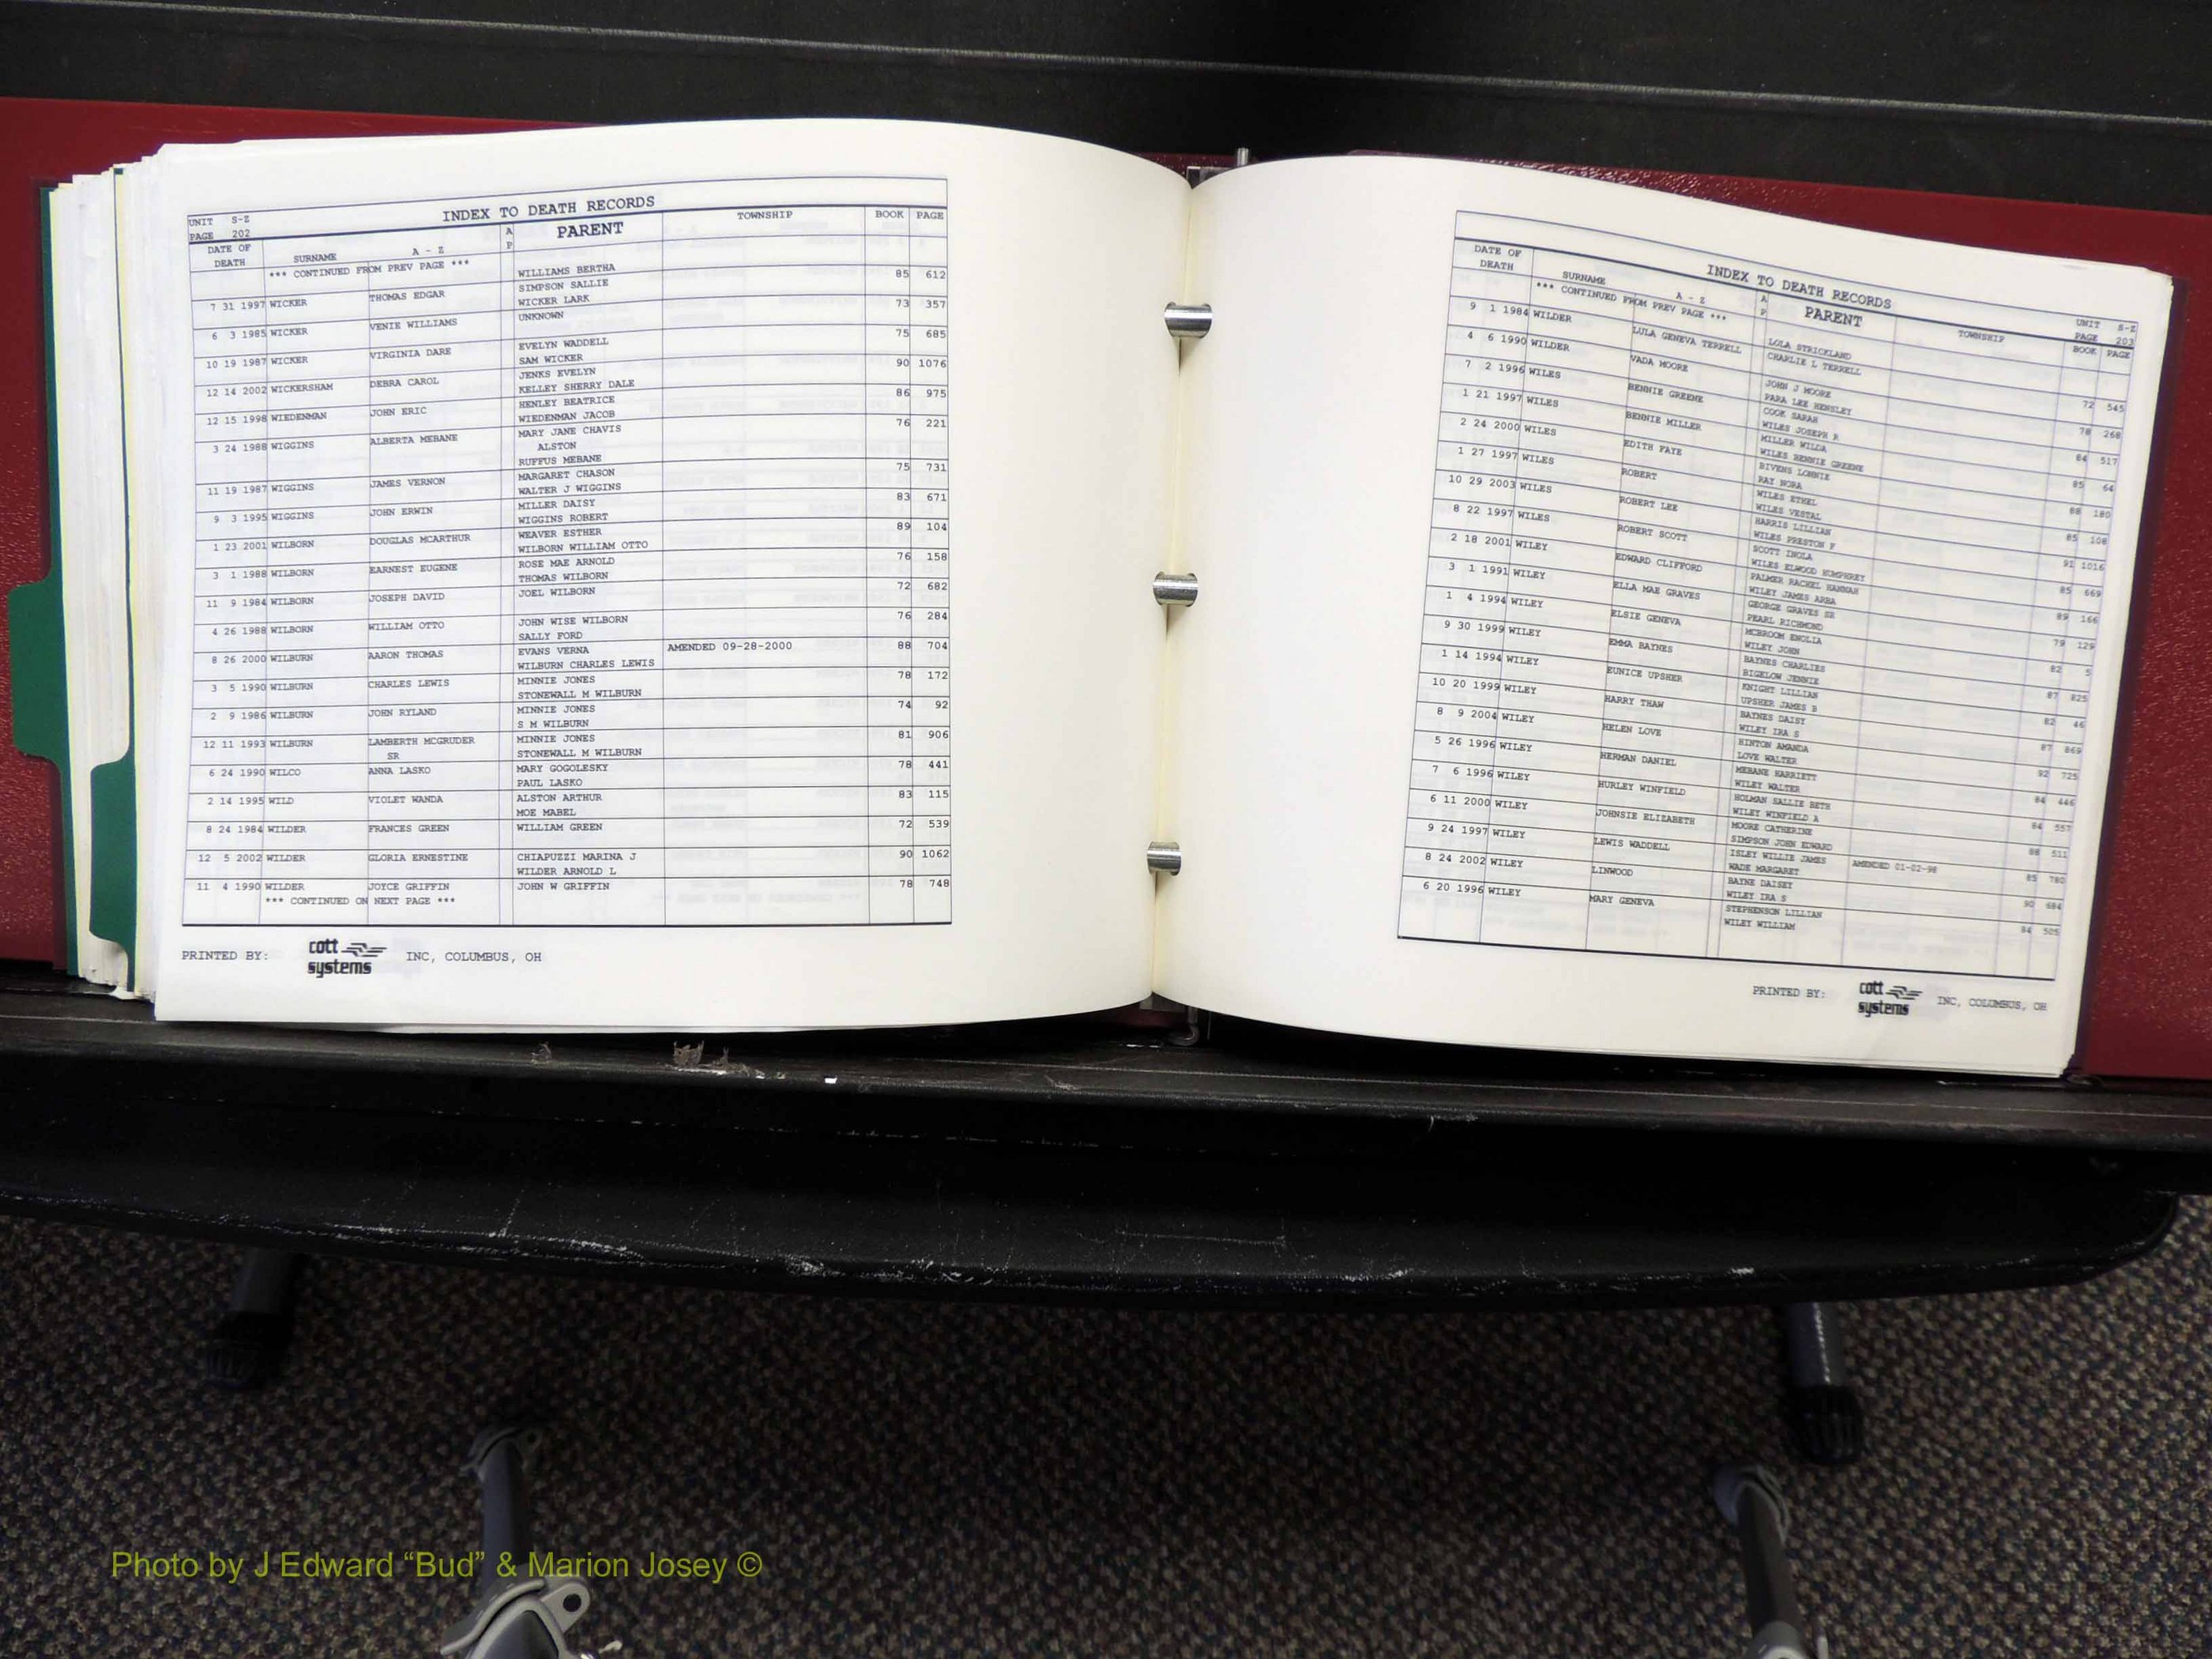 UNIT S-Z
PAGE 202
INDEX TO DEATH RECORDS
DATE OF DEATH SURNAME A - Z A P PARENT TOWNSHIP BOOK PAGE
*** CONTINUED FROM PREV PAGE *** WILLIAMS BERTHA
7 31 1997 WICKER THOMAS EDGAR SIMPSON SALLIE 85 612
WICKER LARK
6 3 1985 WICKER VENIE WILLIAMS UNKNOWN 73 357
10 19 1987 WICKER VIRGINIA DARE EVELYN WADDELL 75 685
SAM WICKER
12 14 2002 WICKERSHAM DEBRA CAROL JENKS EVELYN 90 1076
KELLEY SHERRY DALE
12 15 1998 WIEDENMAN JOHN ERIC HENLEY BEATRICE 86 975
WIEDENMAN JACOB
3 24 1988 WIGGINS ALBERTA MEBANE MARY JANE CHAVIS 76 221
ALSTON
RUFFUS MEBANE
11 19 1987 WIGGINS JAMES VERNON MARGARET CHASON 75 731
WALTER J WIGGINS
9 3 1995 WIGGINS JOHN ERWIN MILLER DAISY 83 671
WIGGINS ROBERT
1 23 2001 WILBORN DOUGLAS MCARTHUR WEAVER ESTHER 89 104
WILBORN WILLIAM OTTO
3 1 1988 WILBORN EARNEST EUGENE ROSE MAE ARNOLD 76 158
THOMAS WILBORN
11 9 1984 WILBORN JOSEPH DAVID JOEL WILBORN 72 682
4 26 1988 WILBORN WILLIAM OTTO JOHN WISE WILBORN 76 284
SALLY FORD
8 26 2000 WILBURN AARON THOMAS EVANS VERNA AMENDED 09-28-2000 88 704
WILBURN CHARLES LEWIS
3 5 1990 WILBURN CHARLES LEWIS MINNIE JONES 78 172
STONEWALL M WILBURN
2 9 1986 WILBURN JOHN RYLAND MINNIE JONES 74 92
S M WILBURN
12 11 1993 WILBURN LAMBERTH MCGRUDER MINNIE JONES 81 906
SR STONEWALL M WILBURN
6 24 1990 WILCO ANNA LASKO MARY GOGOLESKY 78 441
PAUL LASKO
2 14 1995 WILD VIOLET WANDA ALSTON ARTHUR 83 115
MOE MABEL
8 24 1984 WILDER FRANCES GREEN WILLIAM GREEN 72 539
12 5 2002 WILDER GLORIA ERNESTINE CHIAPUZZI MARINA J 90 1062
WILDER ARNOLD L
11 4 1990 WILDER JOYCE GRIFFIN JOHN W GRIFFIN 78 748
*** CONTINUED ON NEXT PAGE ***
PRINTED BY: cott systems INC, COLUMBUS, OH
INDEX TO DEATH RECORDS
UNIT S-Z
PAGE 203
DATE OF DEATH SURNAME A - Z A P PARENT TOWNSHIP BOOK PAGE
*** CONTINUED FROM PREV PAGE ***
9 1 1984 WILDER LULA GENEVA TERRELL LOLA STRICKLAND 72 545
CHARLIE L TERRELL
4 6 1990 WILDER VADA MOORE JOHN J MOORE 78 268
PARA LEE HENSLEY
7 2 1996 WILES BENNIE GREENE COOK SARAH 84 517
WILES JOSEPH R
1 21 1997 WILES BENNIE MILLER MILLER WILDA 85 64
WILES BENNIE GREENE
2 24 2000 WILES EDITH FAYE BIVENS LONNIE 88 180
RAY NORA
1 27 1997 WILES ROBERT WILES ETHEL 85 108
WILES VESTAL
10 29 2003 WILES ROBERT LEE HARRIS LILLIAN 91 1016
WILES PRESTON F
8 22 1997 WILES ROBERT SCOTT SCOTT INOLA 85 669
WILES ELWOOD HUMPHREY
2 18 2001 WILEY EDWARD CLIFFORD PALMER RACHEL HANNAH 89 166
WILEY JAMES ARBA
3 1 1991 WILEY ELLA MAE GRAVES GEORGE GRAVES SR 79 129
PEARL RICHMOND
1 4 1994 WILEY ELSIE GENEVA MCBROOM ENOLIA 82 5
WILEY JOHN
9 30 1999 WILEY EMMA BAYNES BAYNES CHARLIES 87 825
BIGELOW JENNIE
1 14 1994 WILEY EUNICE UPSHER KNIGHT LILLIAN 82 46
UPSHER JAMES B
10 20 1999 WILEY HARRY THAW BAYNES DAISY 87 869
WILEY IRA S
8 9 2004 WILEY HELEN LOVE HINTON AMANDA 92 725
LOVE WALTER
5 26 1996 WILEY HERMAN DANIEL MEBANE HARRIETT 84 446
WILEY WALTER
7 6 1996 WILEY HURLEY WINFIELD HOLMAN SALLIE BETH 84 557
WILEY WINFIELD A
6 11 2000 WILEY JOHNSIE ELIZABETH MOORE CATHERINE 88 511
SIMPSON JOHN EDWARD
9 24 1997 WILEY LEWIS WADDELL ISLEY WILLIE JAMES AMENDED 01-02-98 85 780
WADE MARGARET
8 24 2002 WILEY LINWOOD BAYNE DAISEY 90 684
WILEY IRA S
6 20 1996 WILEY MARY GENEVA STEPHENSON LILLIAN 84 505
WILEY WILLIAM
PRINTED BY: cott systems INC, COLUMBUS, OH
Photo by J Edward “Bud” & Marion Josey ©